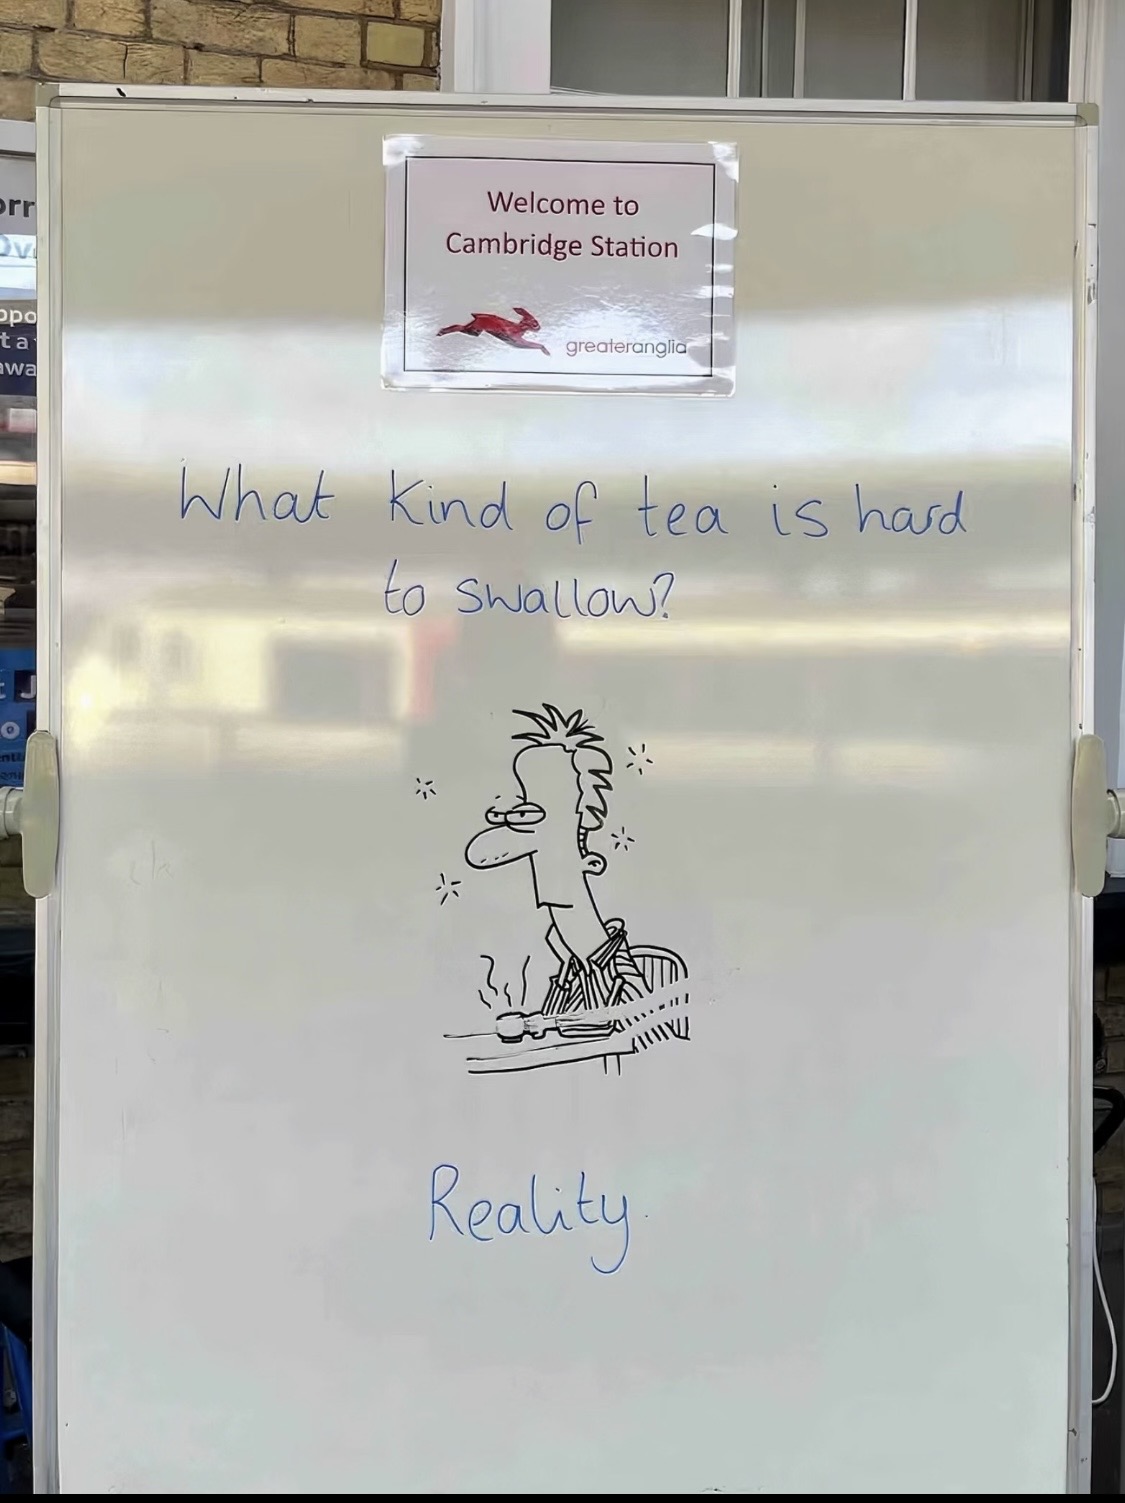 Welcome to
Cambridge Station
greateranglia
What kind of tea is hard
to swallow?
Reality.